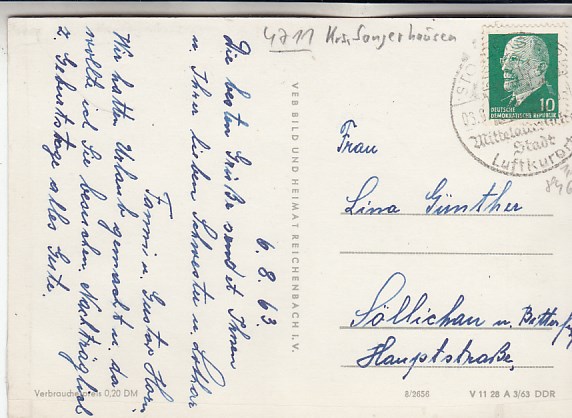 4711 Krs. Sangerhausen
6. 8. 63.
Die besten Grüße sendet Ihnen
u. Ihrer lieben Schwester u. Lothar
Fanni u. Gustav
Wir hatten Urlaub gemacht u. da
wollte ich Sie besuchen. Nachträglich
z. Geburtstage alles Gute.
VEB BILD UND HEIMAT REICHENBACH I. V.
DEUTSCHE
DEMOKRATISCHE REPUBLIK
10
Stadt
Luftkurort
Frau
Lina Günther
Söllichau u. Bitterf
Hauptstraße,
Verbraucherpreis 0,20 DM
8/2656
V 11 28 A 3/63 DDR